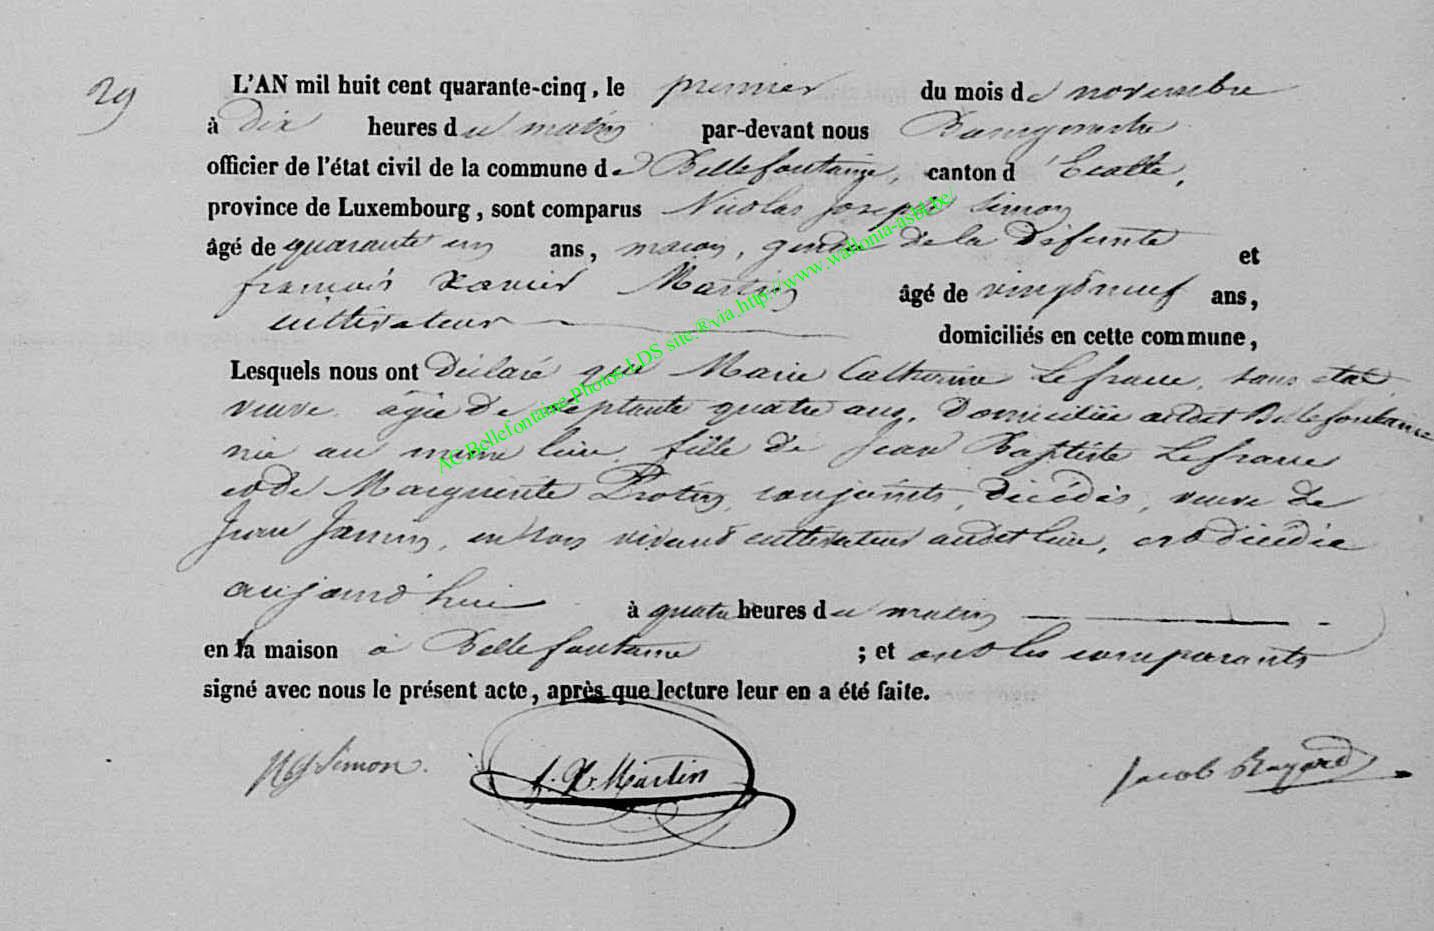 29
L'AN mil huit cent quarante-cinq, le premier du mois de novembre
à dix heures du matin par-devant nous Bourgmestre
officier de l'état civil de la commune de Bellefontaine, canton d'Etalle,
province de Luxembourg, sont comparus Nicolas Joseph Simon
âgé de quarante un ans, maçon, gendre de la défunte et
françois Xavier Martin âgé de vingt neuf ans,
cultivateur domiciliés en cette commune,
Lesquels nous ont déclaré que Marie Catherine Lefranc, sans état
veuve, âgée de septante quatre ans, domiciliée audit Bellefontaine
née au même lieu, fille de Jean Baptiste Lefranc
et de Marguerite Protin, conjoints, décédés, veuve de
Jean Jamin, en son vivant cultivateur audit lieu, est décédée
aujourd'hui à quatre heures du matin
en la maison à Bellefontaine ; et ont les comparants
signé avec nous le présent acte, après que lecture leur en a été faite.
NJ Simon. f. X. Martin Jacob
AC Bellefontaine Photos LDS site ®via http://www.wallonia-asbl.be/